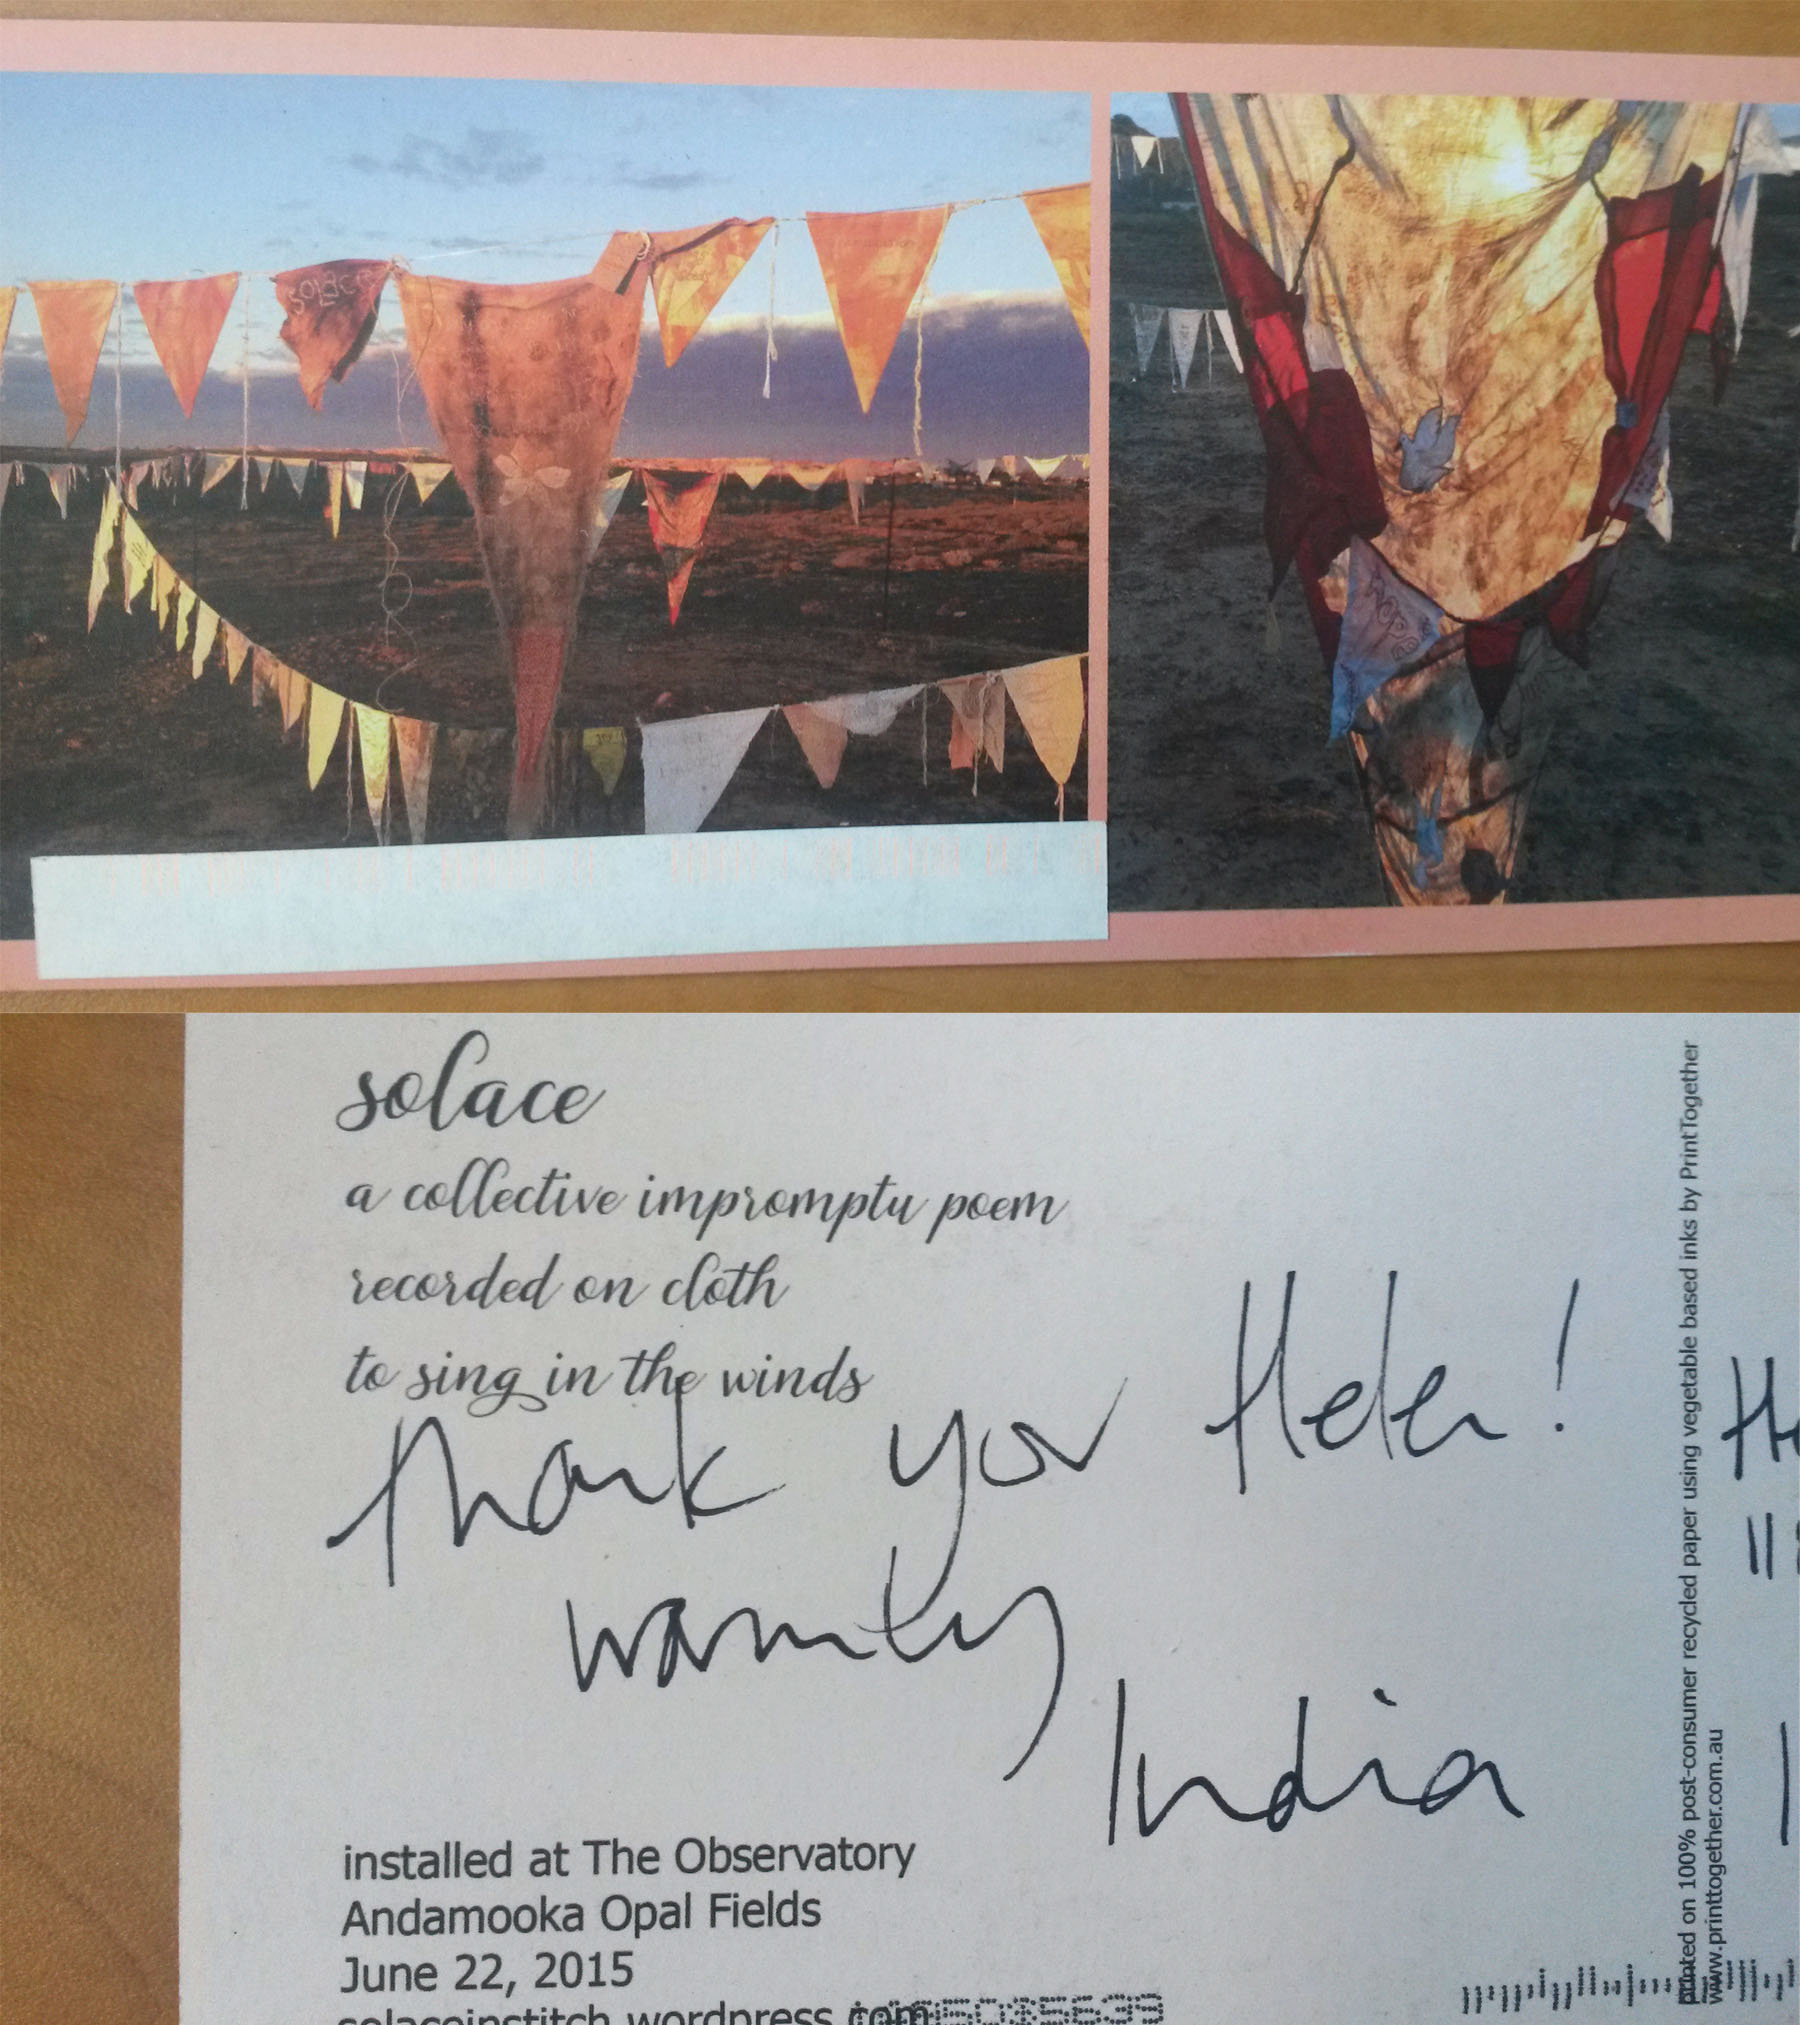 solace
solace
a collective impromptu poem
recorded on cloth
to sing in the winds
Thank you Helen!
warmly
India
installed at The Observatory
Andamooka Opal Fields
June 22, 2015
solaceinstitch.wordpress.com
printed on 100% post-consumer recycled paper using vegetable based inks by PrintTogether
www.printtogether.com.au